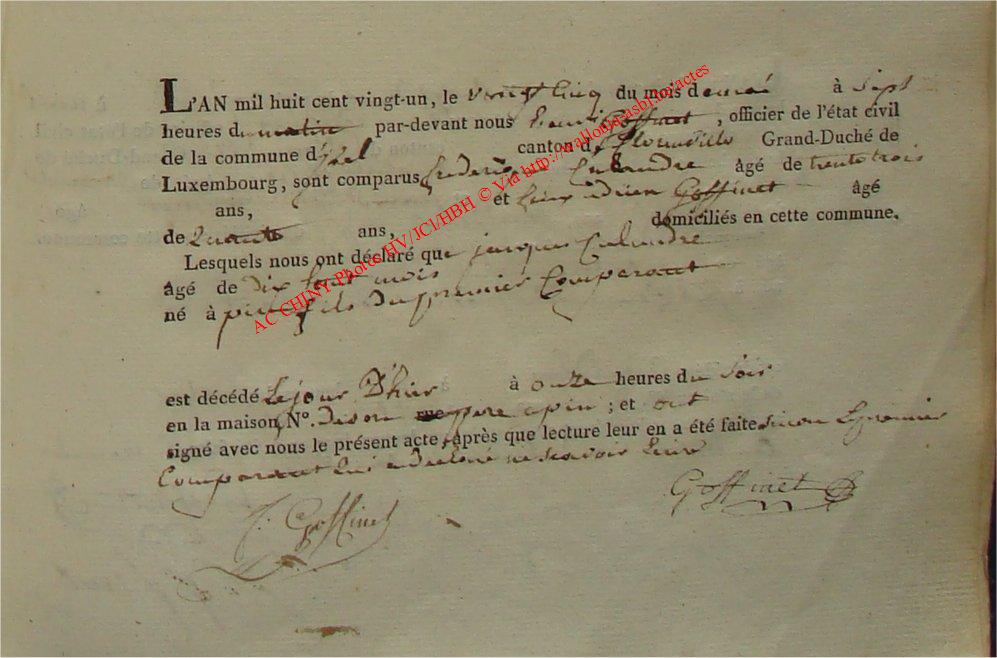 L'AN mil huit cent vingt-un, le vingt cinq du mois de mai à sept
heures du matin par-devant nous henri Goffinet, officier de l'état civil
de la commune d'Izel canton de florenville Grand-Duché de
Luxembourg, sont comparus Calandre âgé de trente trois
ans, et adrien Goffinet âgé
de ans, domiciliés en cette commune.
Lesquels nous ont déclaré que jacques Calandre
âgé de dix mois
né à pin fils du premier Comparant
est décédé le jour D'hier à onze heures du soir
en la maison N°. de son pere a pin ; et ont
signé avec nous le présent acte, après que lecture leur en a été faite sinon le premier
Comparant qui a declaré ne scavoir
Goffinet
Goffinet
AC CHINY-Photos HV/JC1/HBH © Via http://walloniesasbl.be/actes